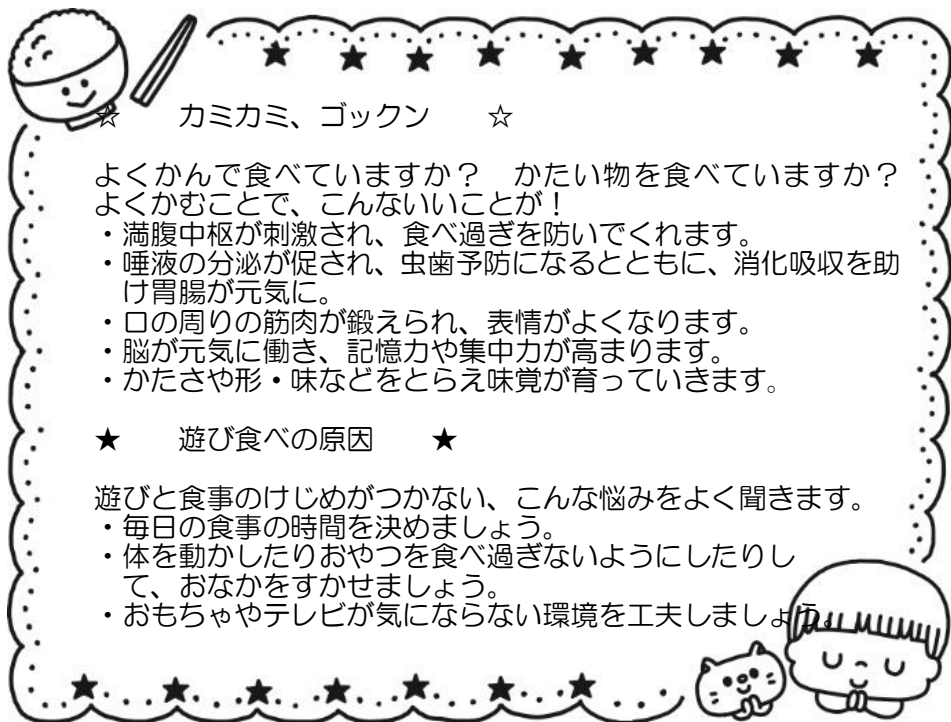 ☆　　カミカミ、ゴックン　　☆
よくかんで食べていますか？　かたい物を食べていますか？
よくかむことで、こんないいことが！
・満腹中枢が刺激され、食べ過ぎを防いでくれます。
・唾液の分泌が促され、虫歯予防になるとともに、消化吸収を助
け胃腸が元気に。
・口の周りの筋肉が鍛えられ、表情がよくなります。
・脳が元気に働き、記憶力や集中力が高まります。
・かたさや形・味などをとらえ味覚が育っていきます。
★　　遊び食べの原因　　★
遊びと食事のけじめがつかない、こんな悩みをよく聞きます。
・毎日の食事の時間を決めましょう。
・体を動かしたりおやつを食べ過ぎないようにしたりし
て、おなかをすかせましょう。
・おもちゃやテレビが気にならない環境を工夫しましょう。